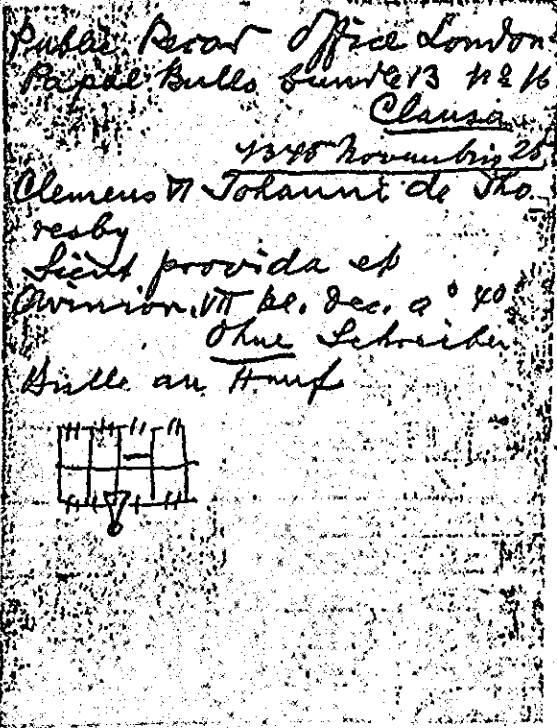 Public Record Office London
Papal Bulls bundle 13 nº 16
Clausa
1345 Novembris 25
Clemens VI Johanni de Tho
resby
Sicut provida et
Avinion. VII kl. dec. aº 4º
Ohne Schreiber
Bulle an Hanf